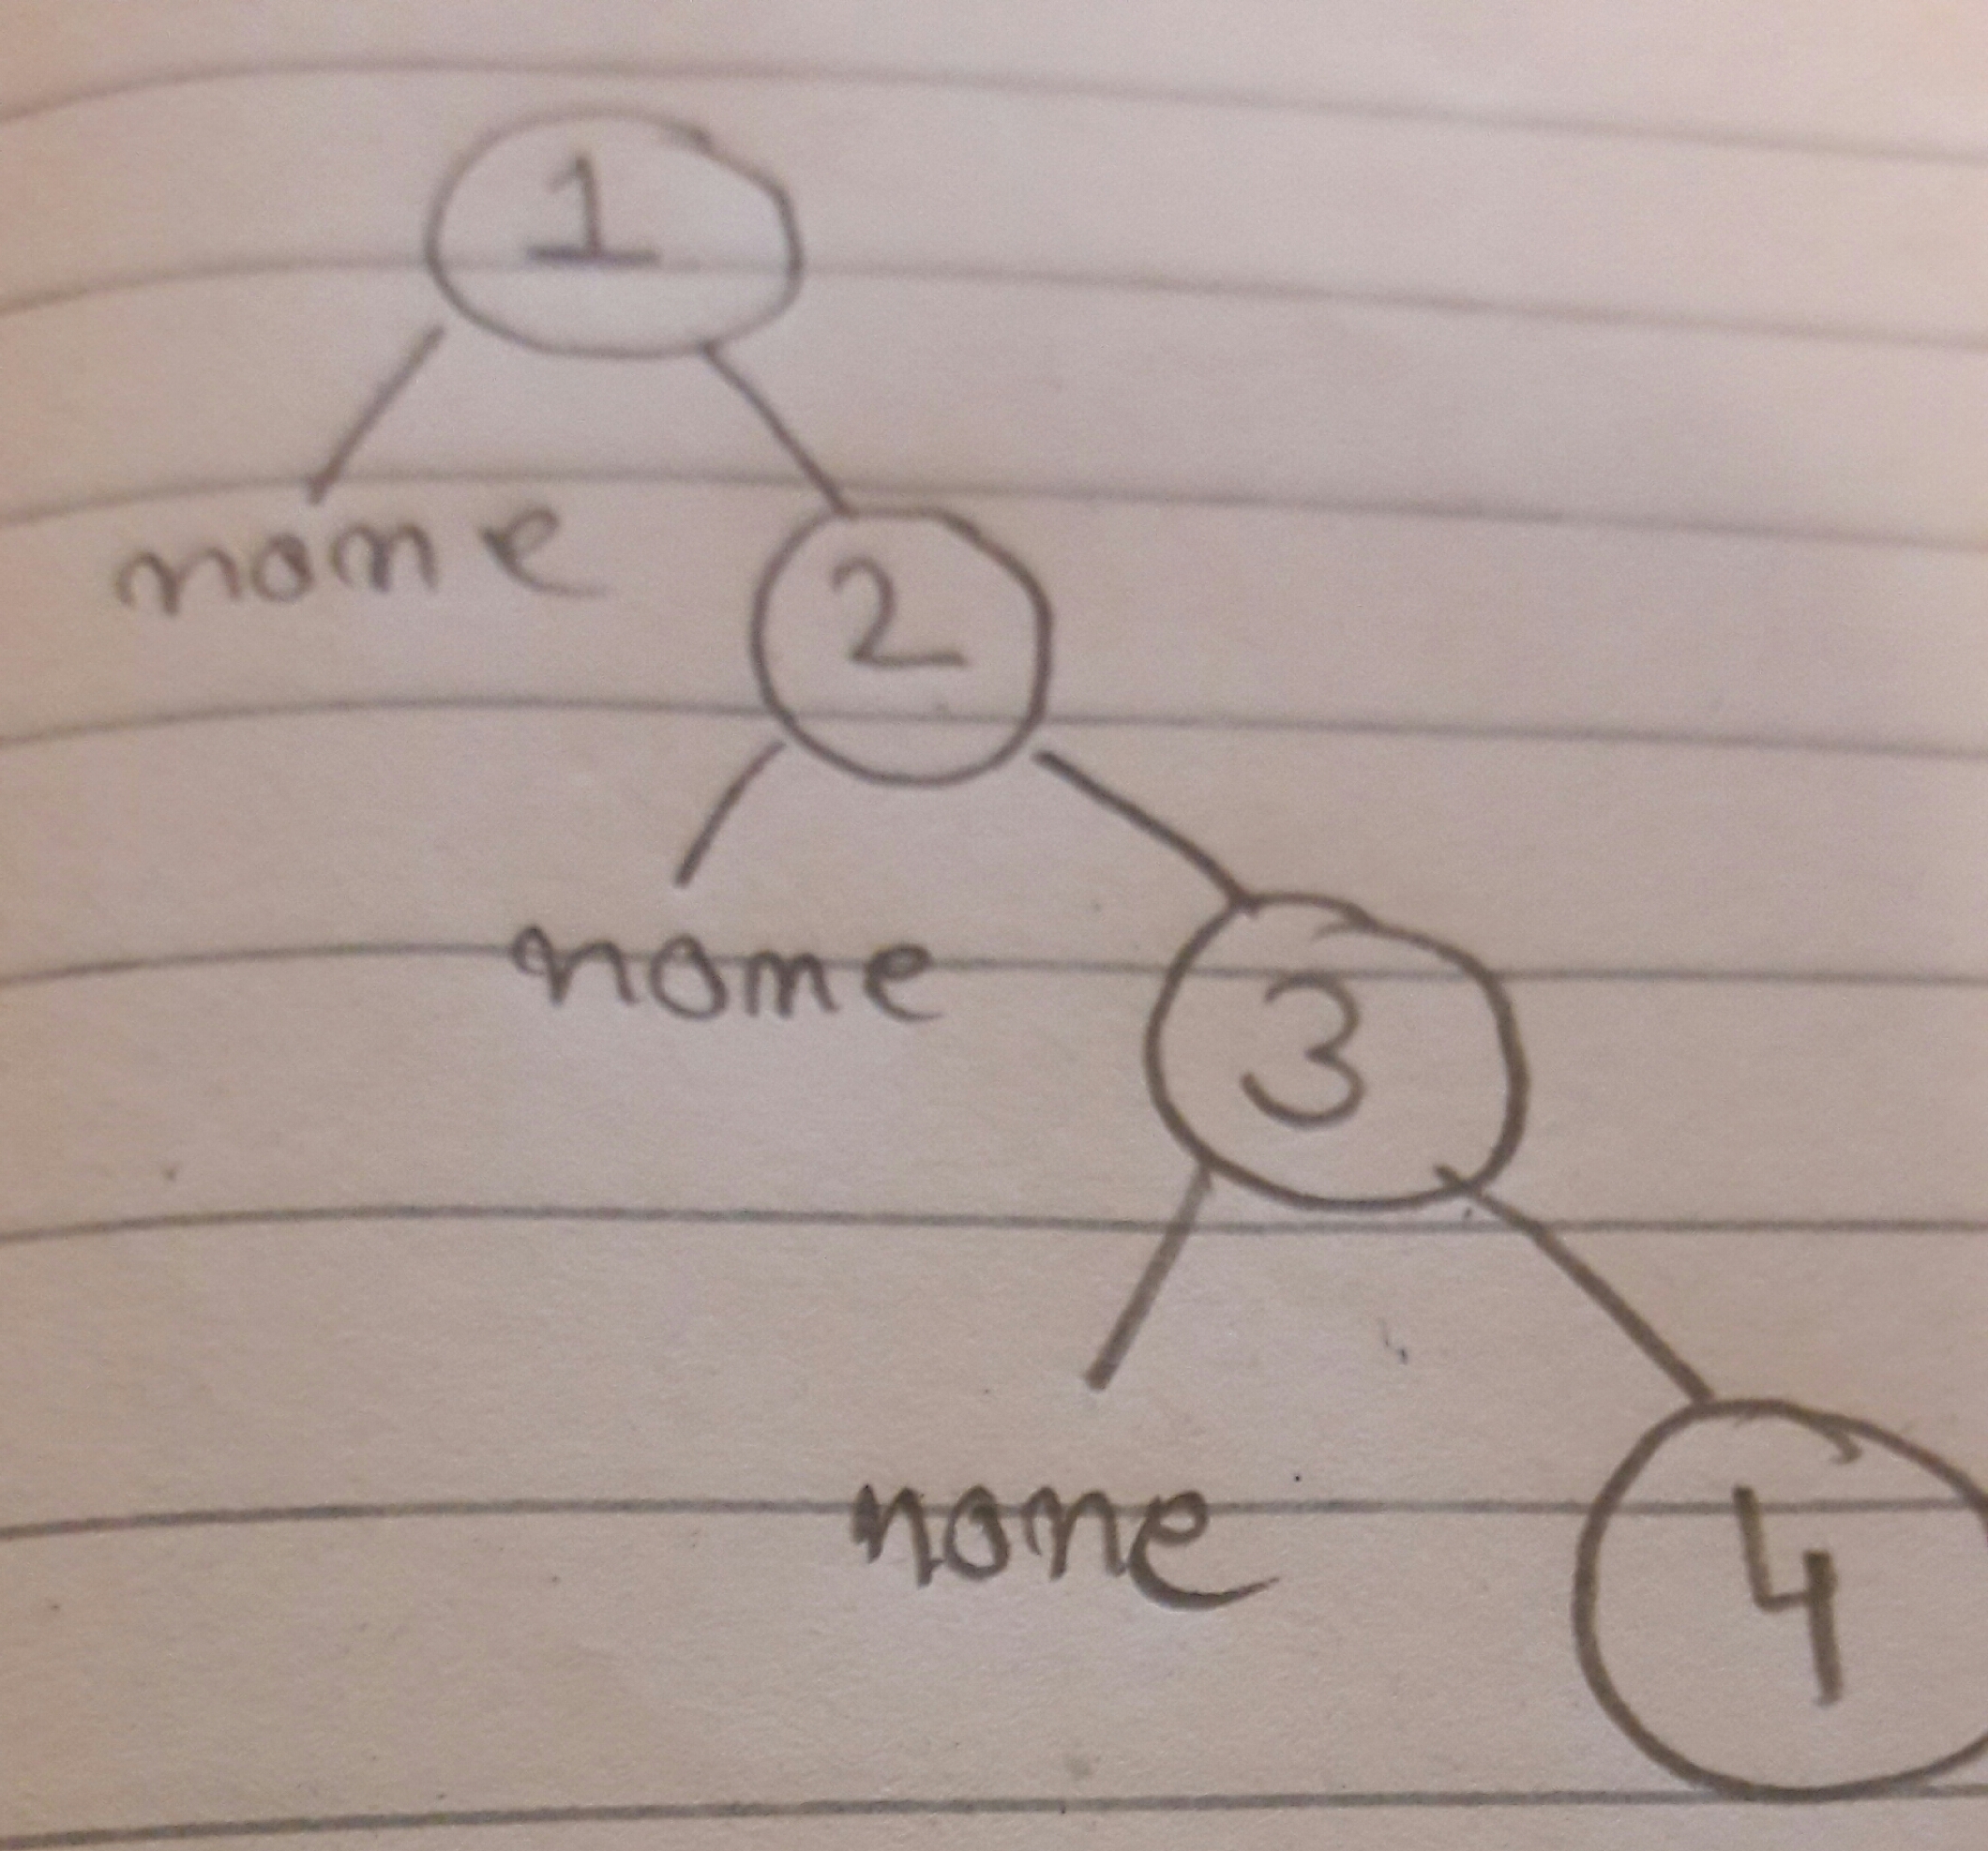 1
none
2
none
3
none
4